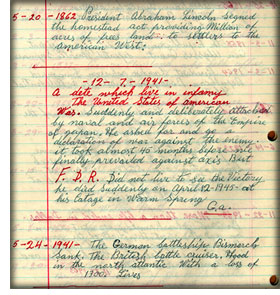 5-20-1862 President Abraham Lincoln signed
the homestead act providing Million of
acres of free land to settlers to the
American West:
-12-7-1941-
A date which live in infamy
The United States of american
War. Suddenly and deliberately attacked
by naval and air forces of the Empire
of Japan. He asked for and go a
declaration of war against the enemy
it took almost 45 months despite
finally prevailed against axis But
F. D. R. Did not live to see the Victory
he died Suddenly on April-12-1945- at
his Catage en Warm Spring
Ga.
5-24-1941- The German battleship Bismarck
Sank the British battle cruiser, Hood
in the north atlantic With a loss of
1300. Lives